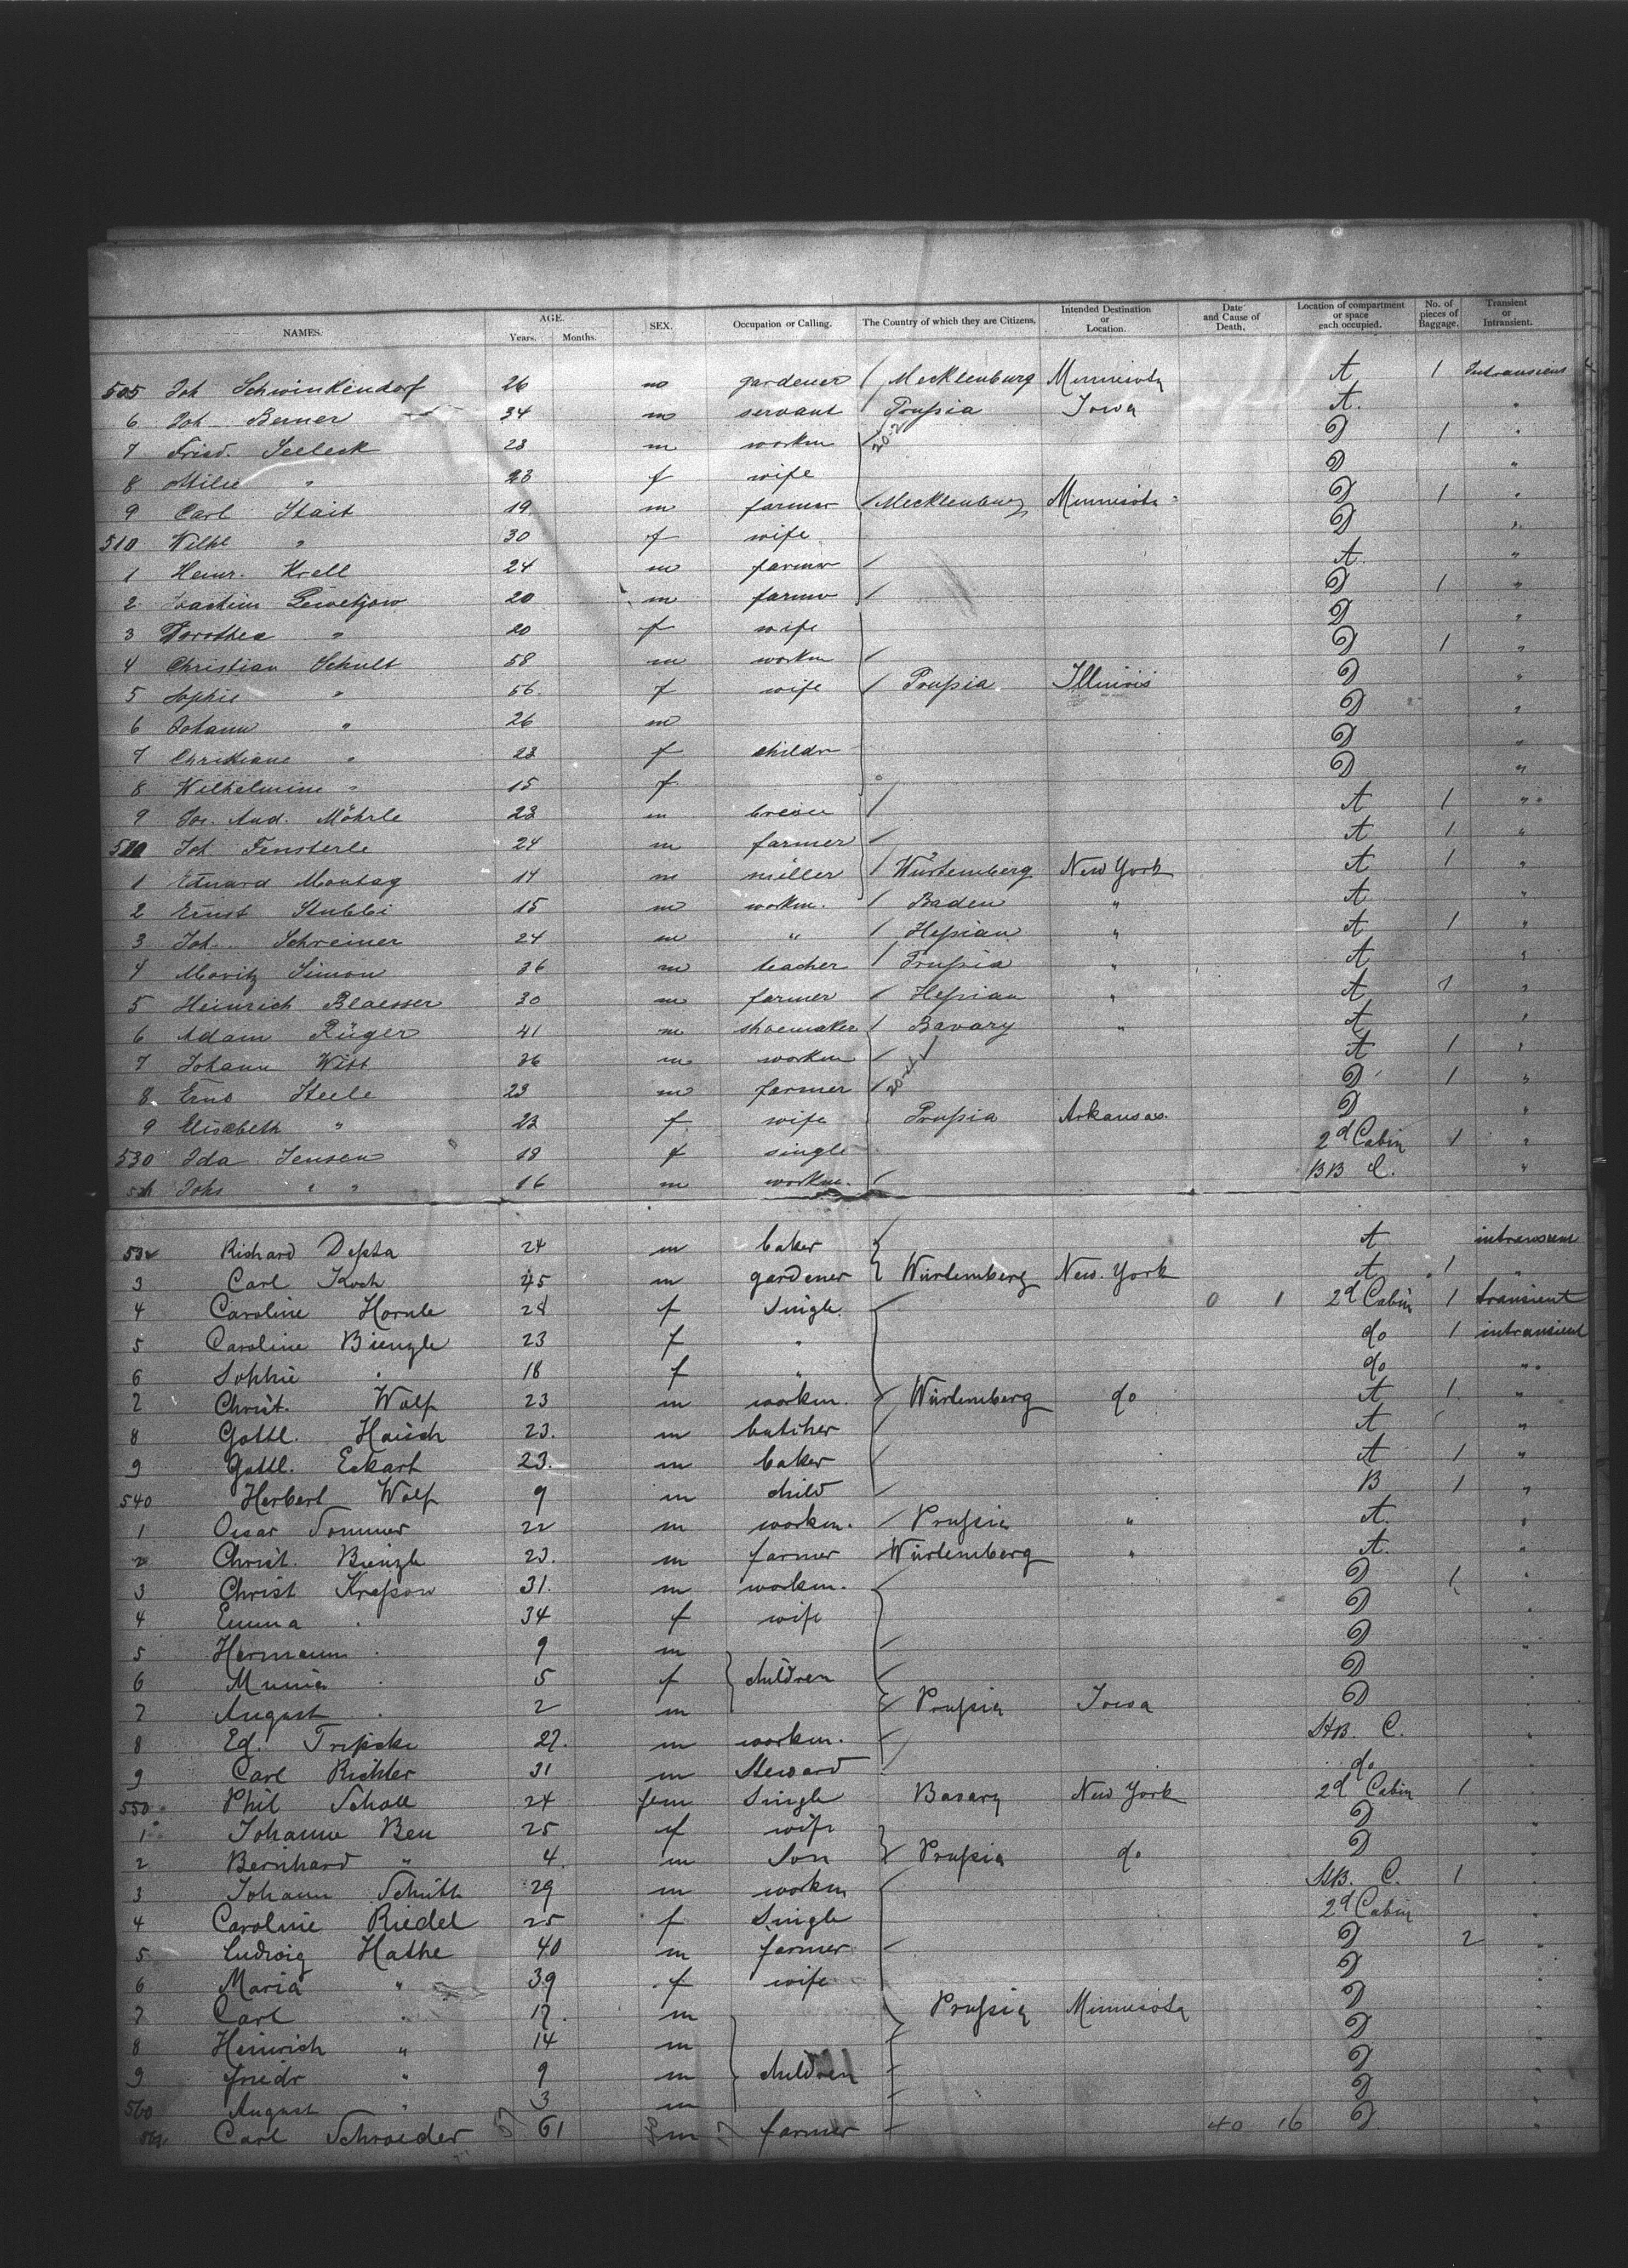 NAMES. AGE. Years. Months. SEX. Occupation or Calling. The Country of which they are Citizens. Intended Destination or Location. Date and Cause of Death. Location of compartment or space each occupied. No. of pieces of Baggage. Transient or Intransient.
505 Joh Schwinkendorf 26 m gardener / Mecklenburg Minnesota A 1 Intransient
6 Joh Berner 34 m servant / Prußia Iowa A "
7 Fried. Seeleck 23 m workm / D 1 "
8 Milie " 23 f wife D "
9 Carl Stait 19 m farmer / Mecklenburg Minnesota D 1 "
510 Wilhl " 30 f wife D "
1 Heinr. Krell 24 m farmer / A "
2 Joachim 20 m farmer / D 1 "
3 Dorothea " 20 f wife D "
4 Christian Schult 58 m workm / D 1 "
5 Sophie " 56 f wife / Prußia Illinois D "
6 Johann " 26 m D "
7 Christiane " 23 f childr D "
8 Wilhelmine " 15 f D "
9 Jos. And. Möhrle 23 m / A 1 "
520 Joh Fensterle 24 m farmer / A 1 "
1 Eduard Montag 14 m miller / Würtemberg New York A 1 "
2 Ernst Stubbi 15 m workm. / Baden " A "
3 Joh. Schreiner 24 m " / Heßian " A 1 "
4 Moritz Simon 36 m teacher / Prußia " A "
5 Heinrich Blaesser 30 m farmer / Heßian " A 1 "
6 Adam Rüger 41 m shoemaker / Bavary " A "
7 Johann Witt 36 m workm / A 1 "
8 Erns Steele 23 m farmer / D 1 "
9 Elisabeth " 23 f wife Prußia Arkansas. D "
530 Ida Jensen 18 f single 2d Cabin 1 "
531 Johs " " 16 m workm. / BB C. "
532 Richard Depta 24 m baker / A intransient
3 Carl Koch 45 m gardener / Würtemberg New. York A 1 "
4 Caroline Hornle 28 f Single / 0 1 2d Cabin 1 transient
5 Caroline Bienzle 23 f " do 1 intransient
6 Sophie " 18 f " do "
7 Christ. Wolf 23 m workm. / Würtemberg do A 1 "
8 Gottl. Haisch 23. m butcher / A "
9 Gottl. Eckart 23. m baker / A 1 "
540 Herbert Wolf 9 m child / B 1 "
1 Oscar Sommer 22 m workm. / Prußia " A. "
2 Christ. Bienzle 23. m farmer / Würtemberg " A. "
3 Christ Kraßow 31. m workm. / D 1 "
4 Emma " 34 f wife D "
5 Hermann " 9 m / D "
6 Minna " 5 f children / D "
7 August " 2 m / Prußia Iowa D "
8 Ed. 27. m workm. / C. "
9 Carl Richter 31 m Steward / do "
550 Phil Scholl 24 fem Single Bavary New York 2d Cabin 1 "
1 Johanne Beu 25 f wife D "
2 Bernhard " 4. m Son / Prußia do D "
3 Johann Schütt 29 m workm / C. 1 "
4 Caroline Riedel 25 f Single 2d Cabin "
5 Ludwig Hathe 40 m farmer / D 2 "
6 Maria " 39 f wife D "
7 Carl " 17. m Prußia Minnesota D "
8 Heinrich " 14 m / D "
9 Friedr " 9 m children / D "
560 August " 3 m / D "
561 Carl Schroeder 61 m farmer / 40 16 D "